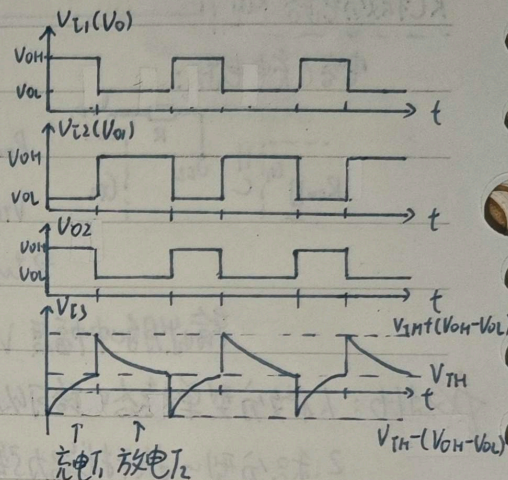 VI1(VO)
VOH
VOL
t
VI2(VO1)
VOH
VOL
t
VO2
VOH
VOL
t
VI3
VTH+(VOH-VOL)
VTH
t
VTH-(VOH-VOL)
充电T1 放电T2